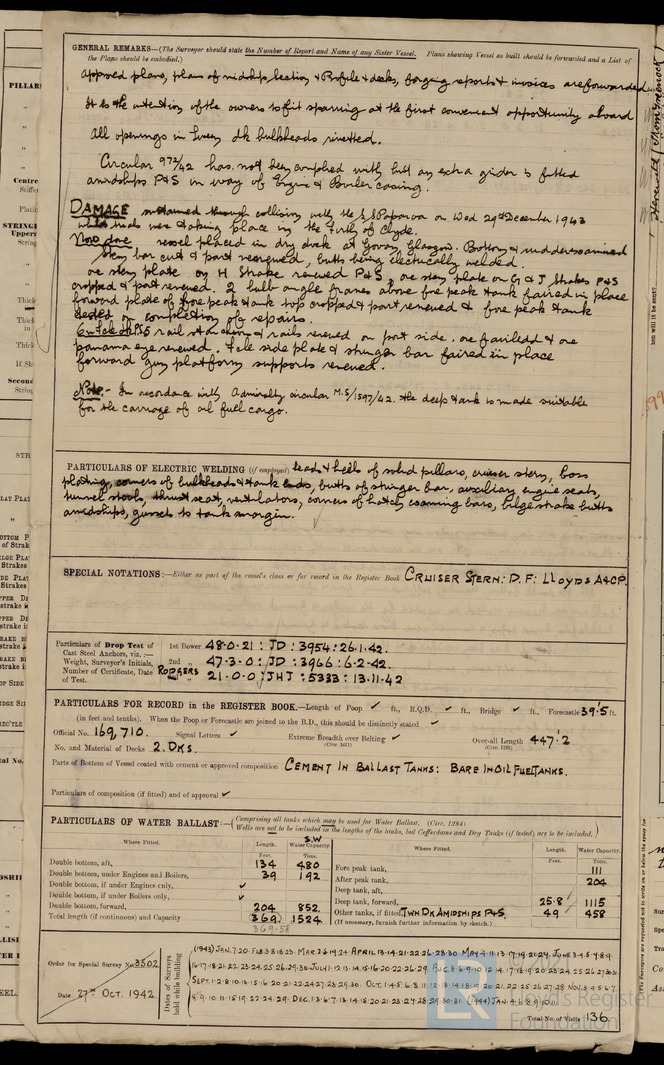 GENERAL REMARKS—(The Surveyor should state the Number of Report and Name of any Sister Vessel. Plans showing Vessel as built should be forwarded and a List of
the Plans should be embodied.)
Approved plans, plans of midship section & Profile & decks, forging reports & invoices are forwarded
It is the intention of the owners to fit sparring at the first convenient opportunity aboard
All openings in tween dk bulkheads rivetted.
Circular 972/42 has not been complied with but an extra girder is fitted
amidships P&S in way of Engine & Boiler casing.
DAMAGE sustained through collision with the S.S Paparoa on Wed 29th December 1943
whilst trials were taking place in the Firth of Clyde.
Now done vessel placed in dry dock at Govan, Glasgow. Bottom & rudder examined
Stem bar cut & part renewed, butts being electrically welded.
one stem plate by H Strake renewed P&S, one stem plate on G & J Strakes P&S
cropped & part renewed. 2 bulb angle frames above fore peak tank faired in place
forward plate of fore peak tank top cropped & part renewed & fore peak tank
tested on completion of repairs.
rail stanchions & rails renewed on port side, one fairlead & one
panama eye renewed. Fcle side plate & stringer bar faired in place
forward gun platform supports renewed.
Note:- In accordance with Admiralty circular M.S/1597/42. the deep tank is made suitable
for the carriage of oil fuel cargo.
PARTICULARS OF ELECTRIC WELDING (if employed) heads & heels of solid pillars, cruiser stern, boss
plating, corners of bulkheads & tank ends, butts of stringer bar, auxiliary engine seats,
tunnel stools, thrust seat, ventilators, corners of hatch coaming bars, bilge strake butts
amidships, gussets to tank margin.
SPECIAL NOTATIONS:—Either as part of the vessel's class or for record in the Register Book. CRUISER STERN: D.F: LLOYDS A&CP.
Particulars of Drop Test of
Cast Steel Anchors, viz.:—
Weight, Surveyor's Initials,
Number of Certificate, Date
of Test.
1st Bower 48.0.21 : JD : 3954 : 26.1.42.
2nd „ 47.3.0 : JD : 3966 : 6.2.42.
RODGERS 21.0.0 : JHJ : 5333 : 13.11.42
PARTICULARS FOR RECORD in the REGISTER BOOK.—Length of Poop ✓ ft., R.Q.D. ✓ ft., Bridge ✓ ft., Forecastle 39.5 ft.
(in feet and tenths). When the Poop or Forecastle are joined to the B.D., this should be distinctly stated ✓
Official No. 169,710. Signal Letters ✓ Extreme Breadth over Belting ✓ Over-all Length 447.2
(Circ. 1611) (Circ. 1703)
No. and Material of Decks 2. DKS.
Parts of Bottom of Vessel coated with cement or approved composition CEMENT IN BALLAST TANKS: BARE IN OIL FUEL TANKS.
Particulars of composition (if fitted) and of approval ✓
PARTICULARS OF WATER BALLAST:—(Comprising all tanks which may be used for Water Ballast. (Circ. 1284)
Wells are not to be included in the lengths of the tanks, but Cofferdams and Dry Tanks (if tested) are to be included.)
S.W
Where Fitted. Length. Water Capacity. Where Fitted. Length. Water Capacity.
Feet. Tons. Feet. Tons.
Double bottom, aft, 134 480
Double bottom, under Engines and Boilers, 39 192
Double bottom, if under Engines only, ✓
Double bottom, if under Boilers only, ✓
Double bottom, forward, 204 852
Total length (if continuous) and Capacity 369 1524
369.58
Fore peak tank, 111
After peak tank, 204
Deep tank, aft,
Deep tank, forward, 25.8 1115
Other tanks, if fitted, TWN DK AMIDSHIPS P&S, 49 458
(If necessary, furnish further information by sketch.)
Order for Special Survey No. 3502
Date 27th OCT. 1942.
Dates of Surveys held while building
Total No. of Visits 136.
Lloyd's Register
Foundation